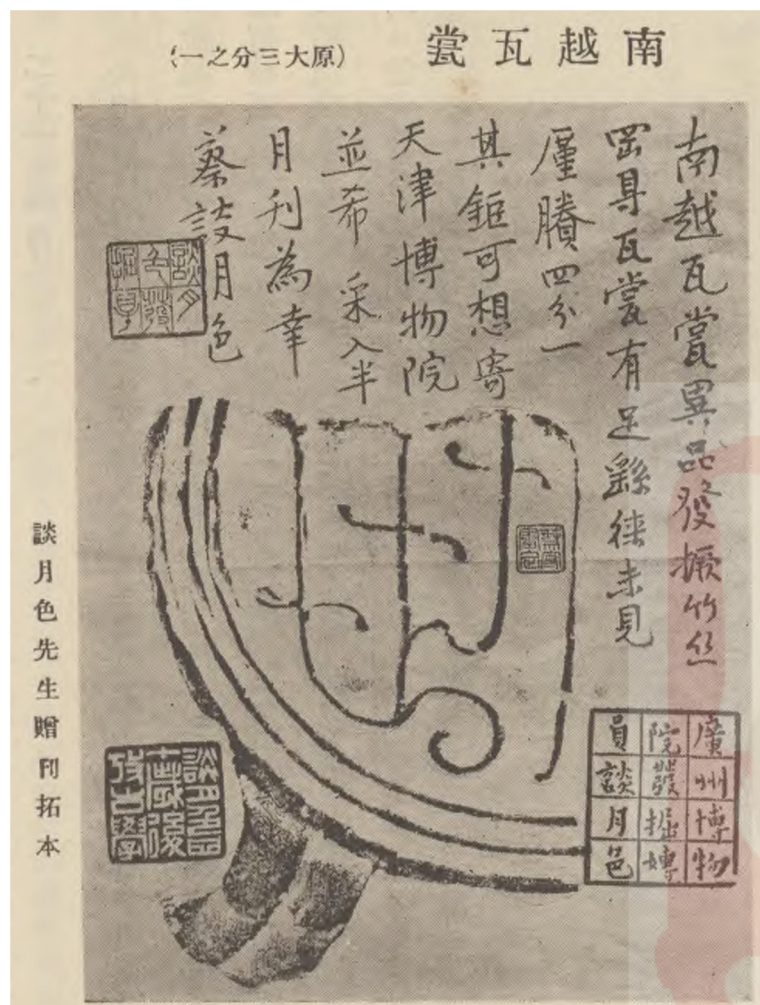 南越瓦瓽
(原大三分之一)
南越瓦瓽異品發撅竹丝
岡㝵瓦瓽有足繇徠未見
厪賸四分一
其鉅可想寄
天津博物院
並希 采入半
月刊為幸
蔡談月色
談月色發掘章
廣州博物
院發掘嫥
員談月色
談月色先生贈刊拓本